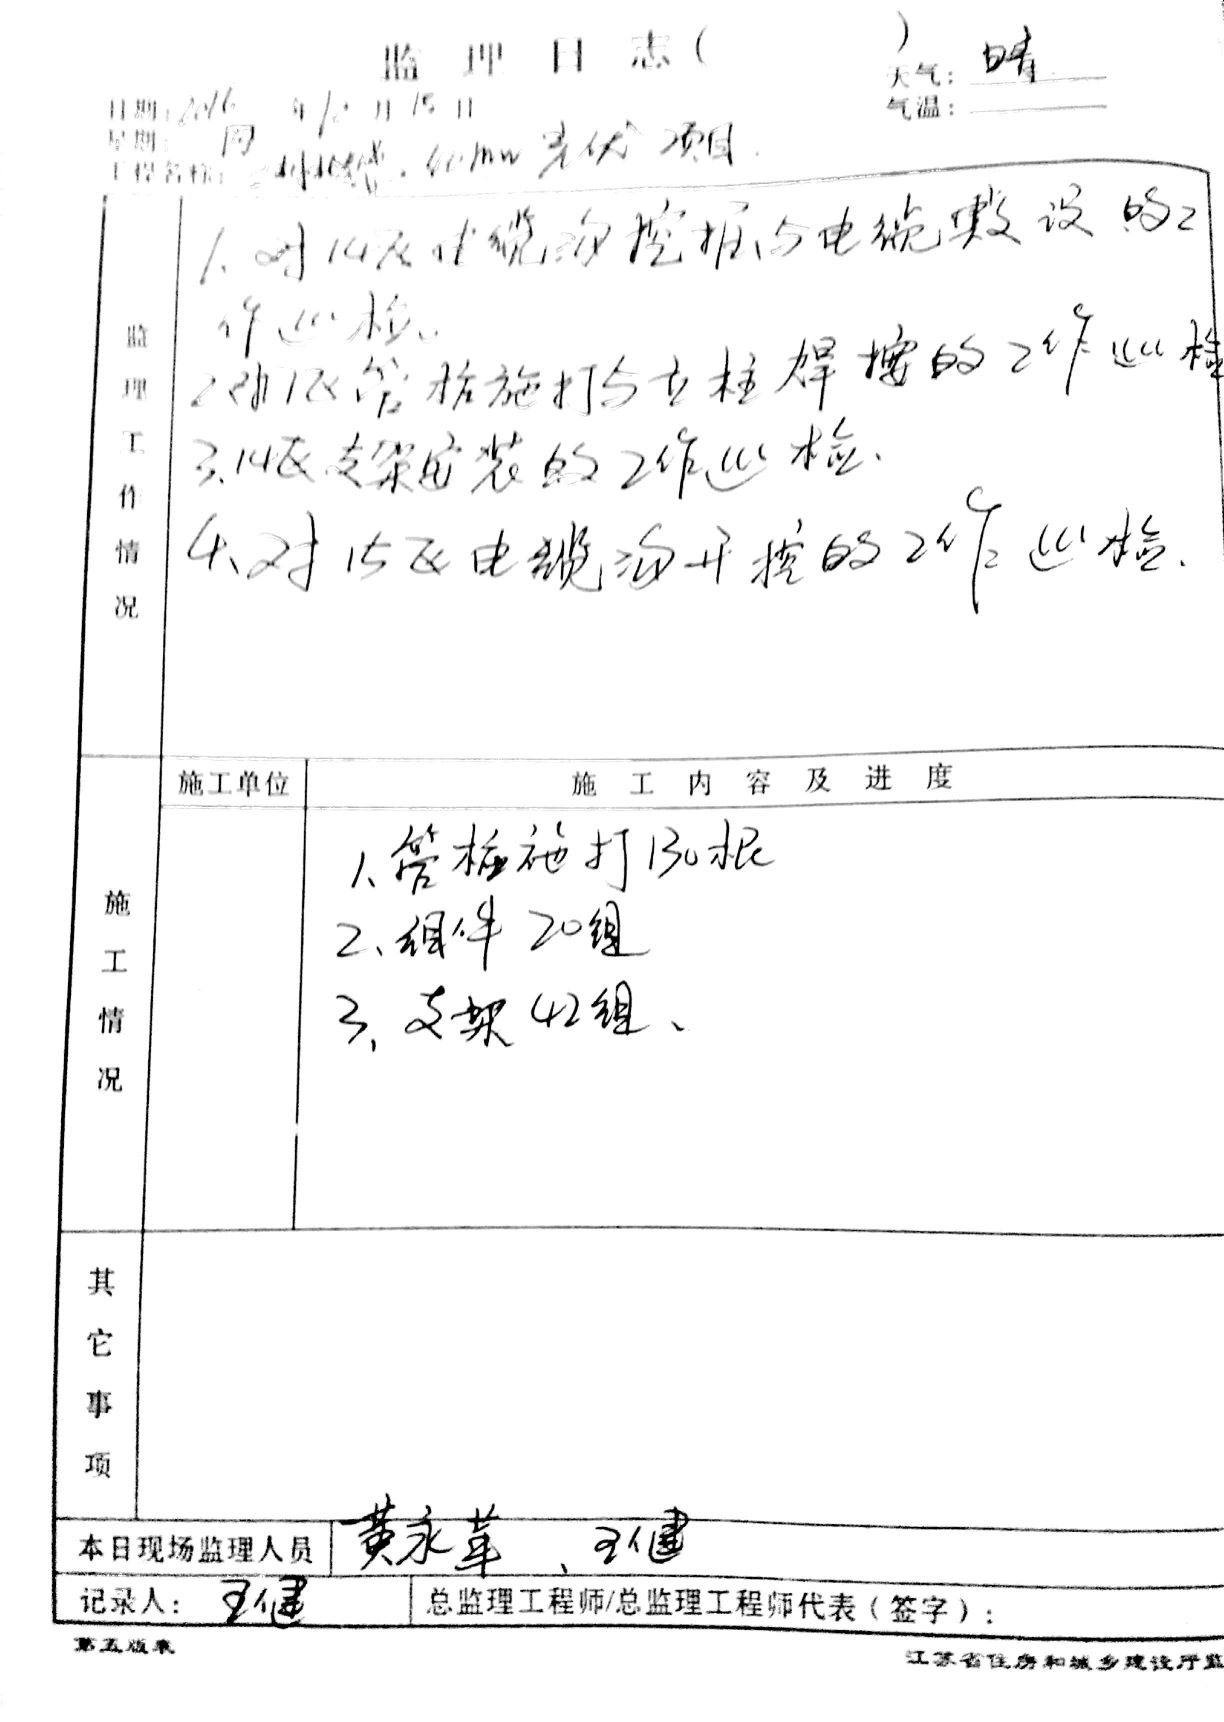 监理日志( )
天气: 晴
日期: 2016年12月15日
气温:
星期: 四
工程名称: 40mw光伏项目.
监理工作情况
1、对14区电缆沟挖掘与电缆敷设的工
作巡检。
2、对1区管桩施打与立柱焊接的工作巡检
3、14区支架安装的工作巡检.
4、对15区电缆沟开挖的工作巡检.
施工单位 施工内容及进度
施工情况
1、管桩施打130根
2、组件20组
3、支架42组、
其它事项
本日现场监理人员 黄永革、王健
记录人: 王健 总监理工程师/总监理工程师代表(签字):
第五版表 江苏省住房和城乡建设厅监